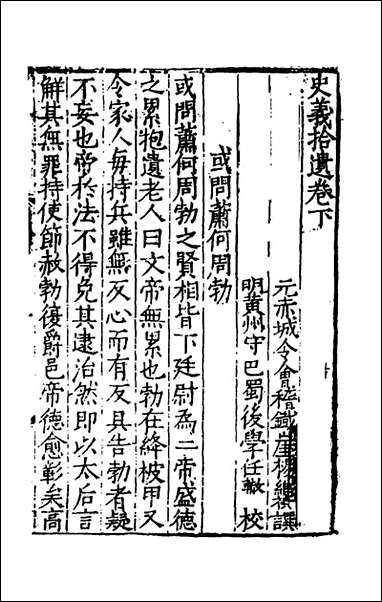 史義拾遺卷下
元赤城令會稽鐵崖楊維禎譔
明黄州守巴蜀後學任轍 校
或問蕭何周勃
或問蕭何周勃之賢相皆下廷尉為二帝盛德
之累抱遺老人曰文帝無累也勃在絳被甲又
令家人毎持兵雖無反心而有反具告勃者疑
不妄也帝於法不得免其逮治然即以太后言
觧其無罪持使節赦勃復爵邑帝德愈彰矣高